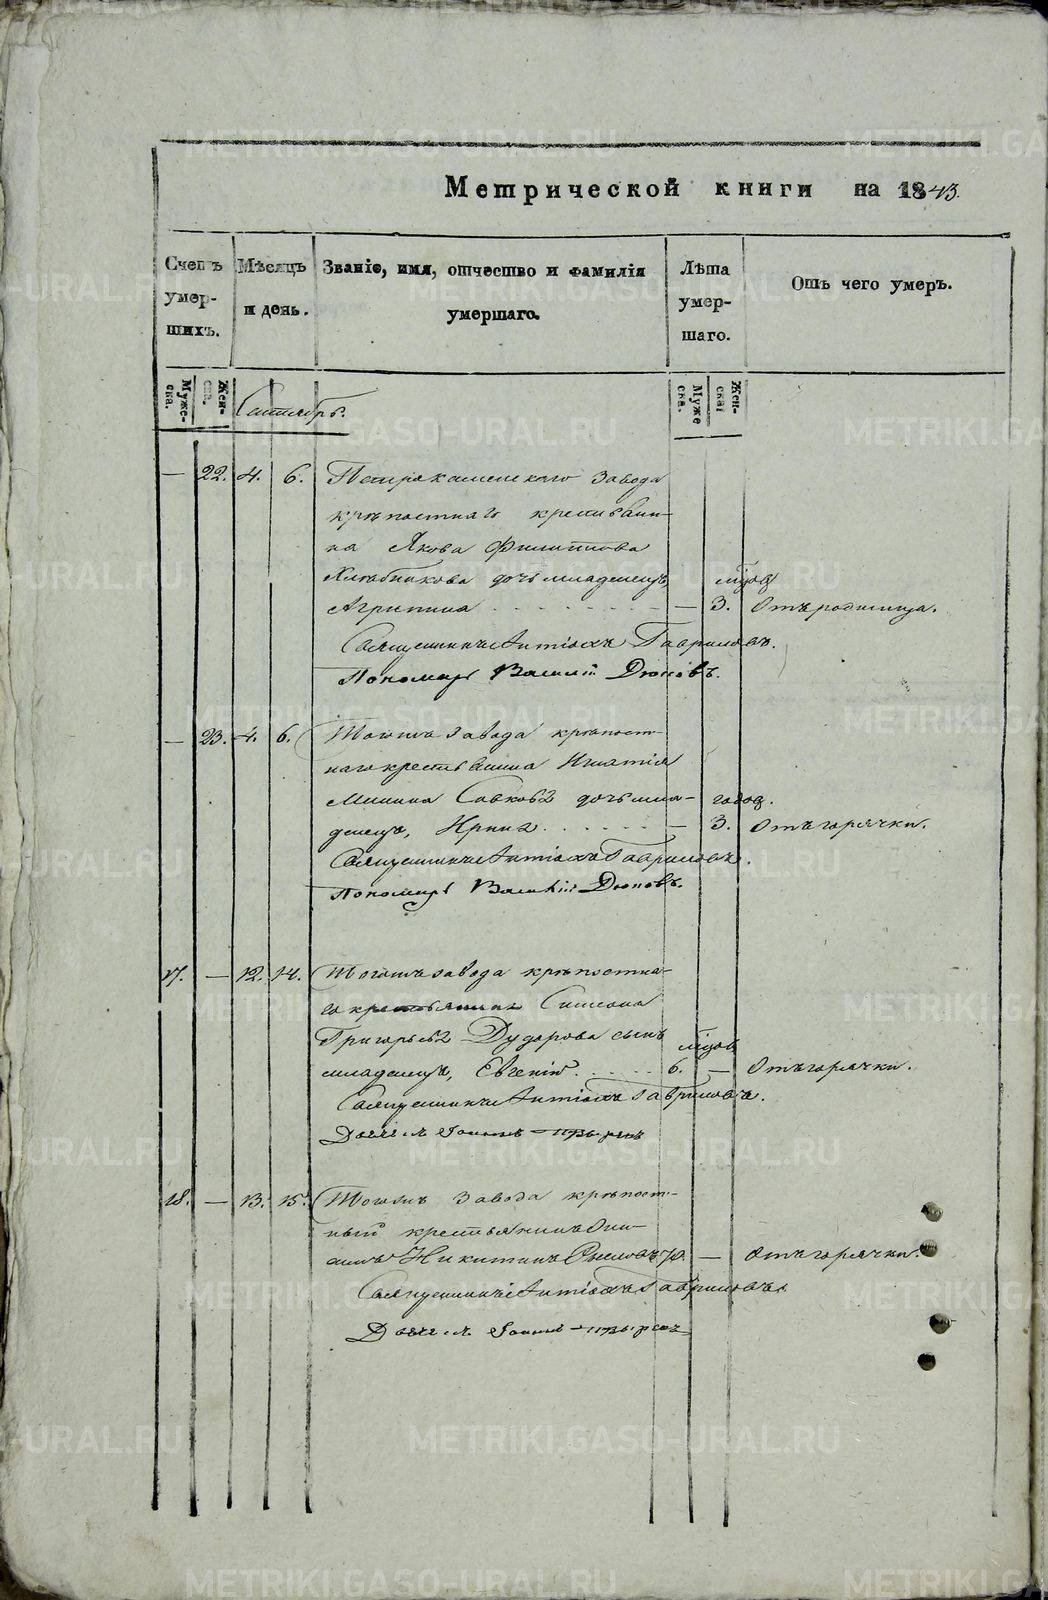 Метрической книги на 1843.
Счетъ умер-шихъ.
Мѣсяцъ и день.
Званіе, имя, отчество и фамилія умершаго.
Лѣта умер-шаго.
Отъ чего умеръ.
Муже-ска.
Жен-ска.
Муже ска.
Жен-ска
Сентябрь.
— 22. 4. 6. Петрокаменского завода
крѣпостнаго крестьяни-
на Якова Филиппова
Хлѣбникова дочь младенецъ, мѣсяц
Агрипина — 3. Отъ родимца.
Священникъ Антіохъ Гавриловъ.
Пономарь Василій Дюковъ.
— 23. 4. 6. Тогожъ завода крѣпост-
наго крестьянина Игнатія
Минина Савкова дочь мла- годов.
денецъ, Ирина — 3. Отъ горячки.
Священникъ Антіохъ Гавриловъ.
Пономарь Василій Дюковъ.
17. — 12. 14. Тогожъ завода крѣпостна-
го крестьянина Симеона
Григорьева Дударова сынъ мѣсяцов
младенецъ, Евгеній 6. — Отъ горячки.
Священникъ Антіохъ Гавриловъ.
18. — 13. 15. Тогожъ завода крѣпост-
ный крестьянинъ
Никитинъ 70. — Отъ горячки.
Священникъ Антіохъ Гавриловъ.
METRIKI.GASO-URAL.RU